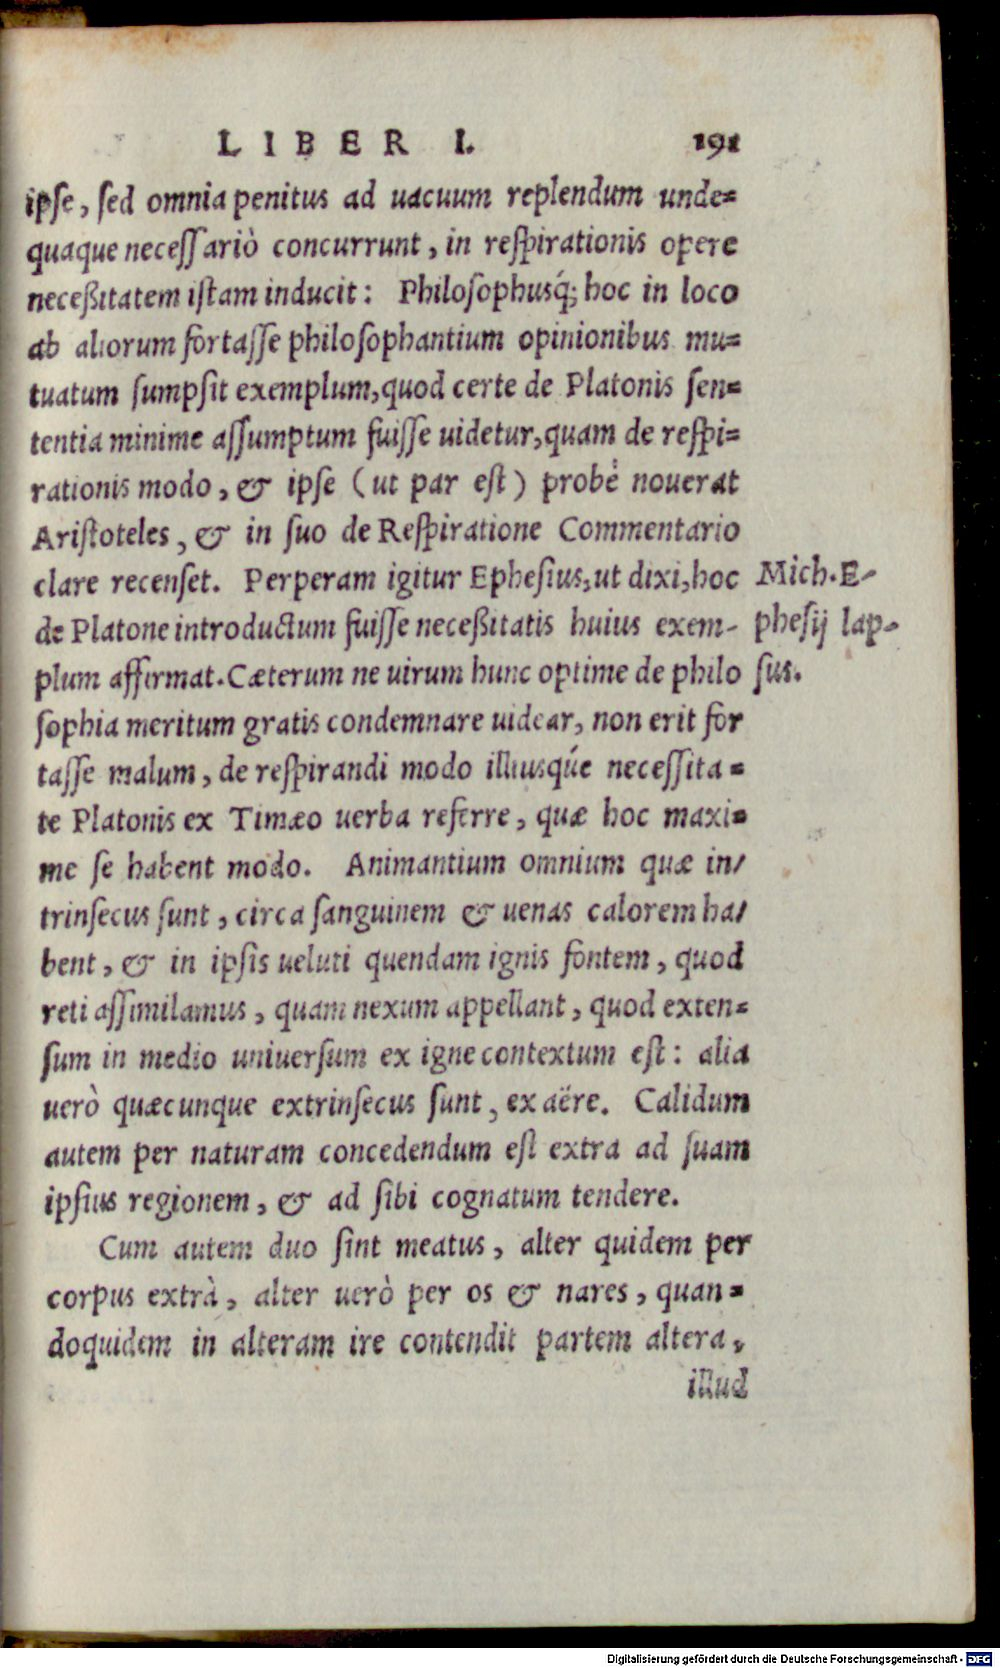 LIBER I. 191
ipſe, ſed omnia penitus ad uacuum replendum unde=
quaque neceſſariò concurrunt, in reſpirationis opere
neceßitatem iſtam inducit: Philoſophusq́; hoc in loco
ab aliorum fortaſſe philoſophantium opinionibus mu=
tuatum ſumpſit exemplum, quod certe de Platonis ſen=
tentia minime aſſumptum fuiſſe uidetur, quam de reſpi=
rationis modo, & ipſe (ut par eſt) probè nouerat
Ariſtoteles, & in ſuo de Reſpiratione Commentario
clare recenſet. Perperam igitur Epheſius, ut dixi, hoc
de Platone introductum fuiſſe neceßitatis huius exem-
plum affirmat. Cæterum ne uirum hunc optime de philo
ſophia meritum gratis condemnare uidear, non erit for
taſſe malum, de reſpirandi modo illiusq́ue neceſſita=
te Platonis ex Timæo uerba referre, quæ hoc maxi=
me ſe habent modo. Animantium omnium quæ in/
trinſecus ſunt, circa ſanguinem & uenas calorem ha/
bent, & in ipſis ueluti quendam ignis fontem, quod
reti aſſimilamus, quam nexum appellant, quod exten=
ſum in medio uniuerſum ex igne contextum eſt: alia
uerò quæcunque extrinſecus ſunt, ex aëre. Calidum
autem per naturam concedendum eſt extra ad ſuam
ipſius regionem, & ad ſibi cognatum tendere.
Cum autem duo ſint meatus, alter quidem per
corpus extrà, alter uerò per os & nares, quan=
doquidem in alteram ire contendit partem altera,
illud
Mich. E-
pheſij lap-
ſus.
Digitalisierung gefördert durch die Deutsche Forschungsgemeinschaft - DFG